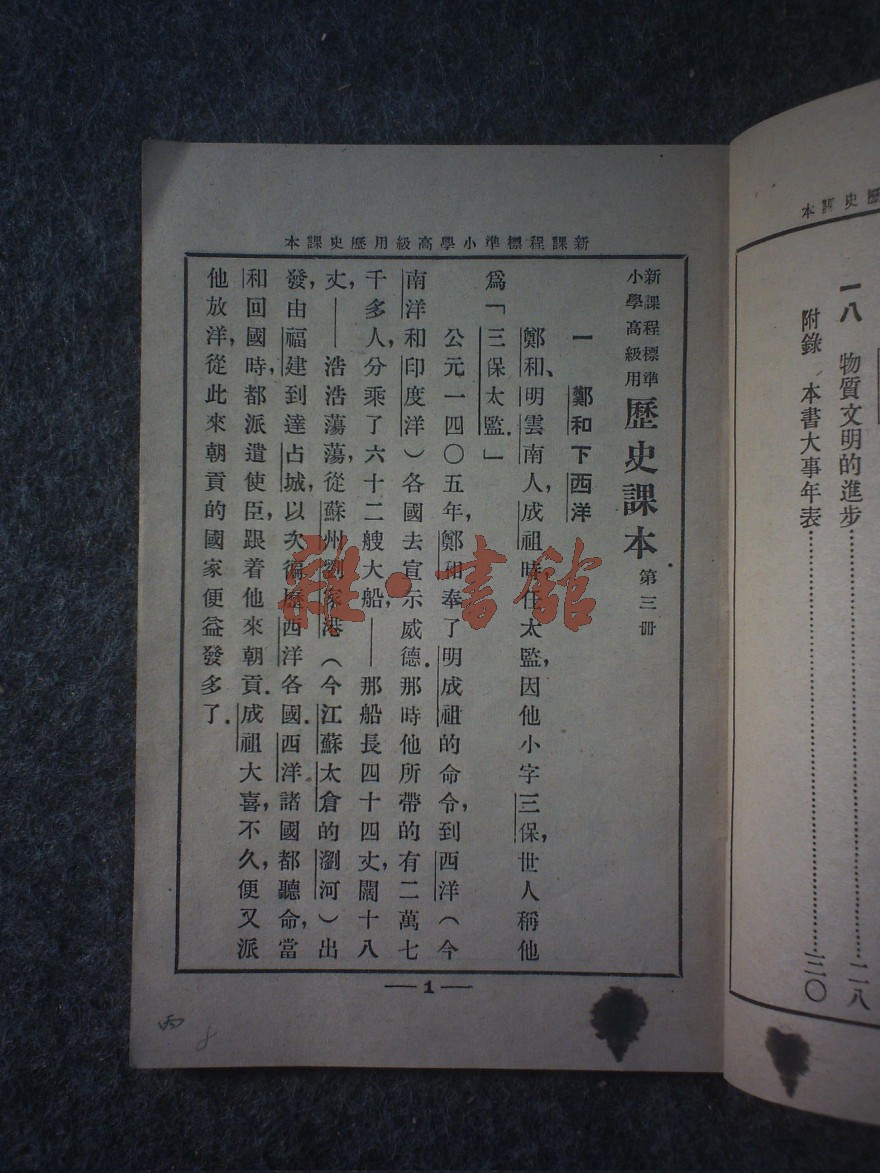 本書史歷
一八 物質文明的進步……二八
附錄 本書大事年表……三〇
本課史歷用級高學小準標程課新
新課程標準
小學高級用
歷史課本 第三册
一 鄭和下西洋
鄭和、明雲南人，成祖時任太監，因他小字三保，世人稱他
爲「三保太監.」
公元一四〇五年，鄭和奉了明成祖的命令，到西洋（今
南洋和印度洋）各國去宣示威德.那時他所帶的有二萬七
千多人，分乘了六十二艘大船，——那船長四十四丈，闊十八
丈，——浩浩蕩蕩，從蘇州劉家港（今江蘇太倉的瀏河）出
發，由福建到達占城，以次徧歷西洋各國.西洋諸國都聽命，當
和回國時，都派遣使臣，跟着他來朝貢.成祖大喜，不久，便又派
他放洋，從此來朝貢的國家便益發多了.
—1—
丙 8
雜·書館